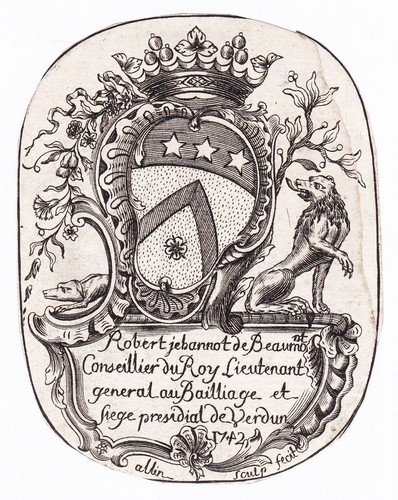 Robert jebannot de Beaumnt
Conseillier du Roy Lieutenant
general au Bailliage et
siege presidial de Verdun
1742
allin sculp fecit